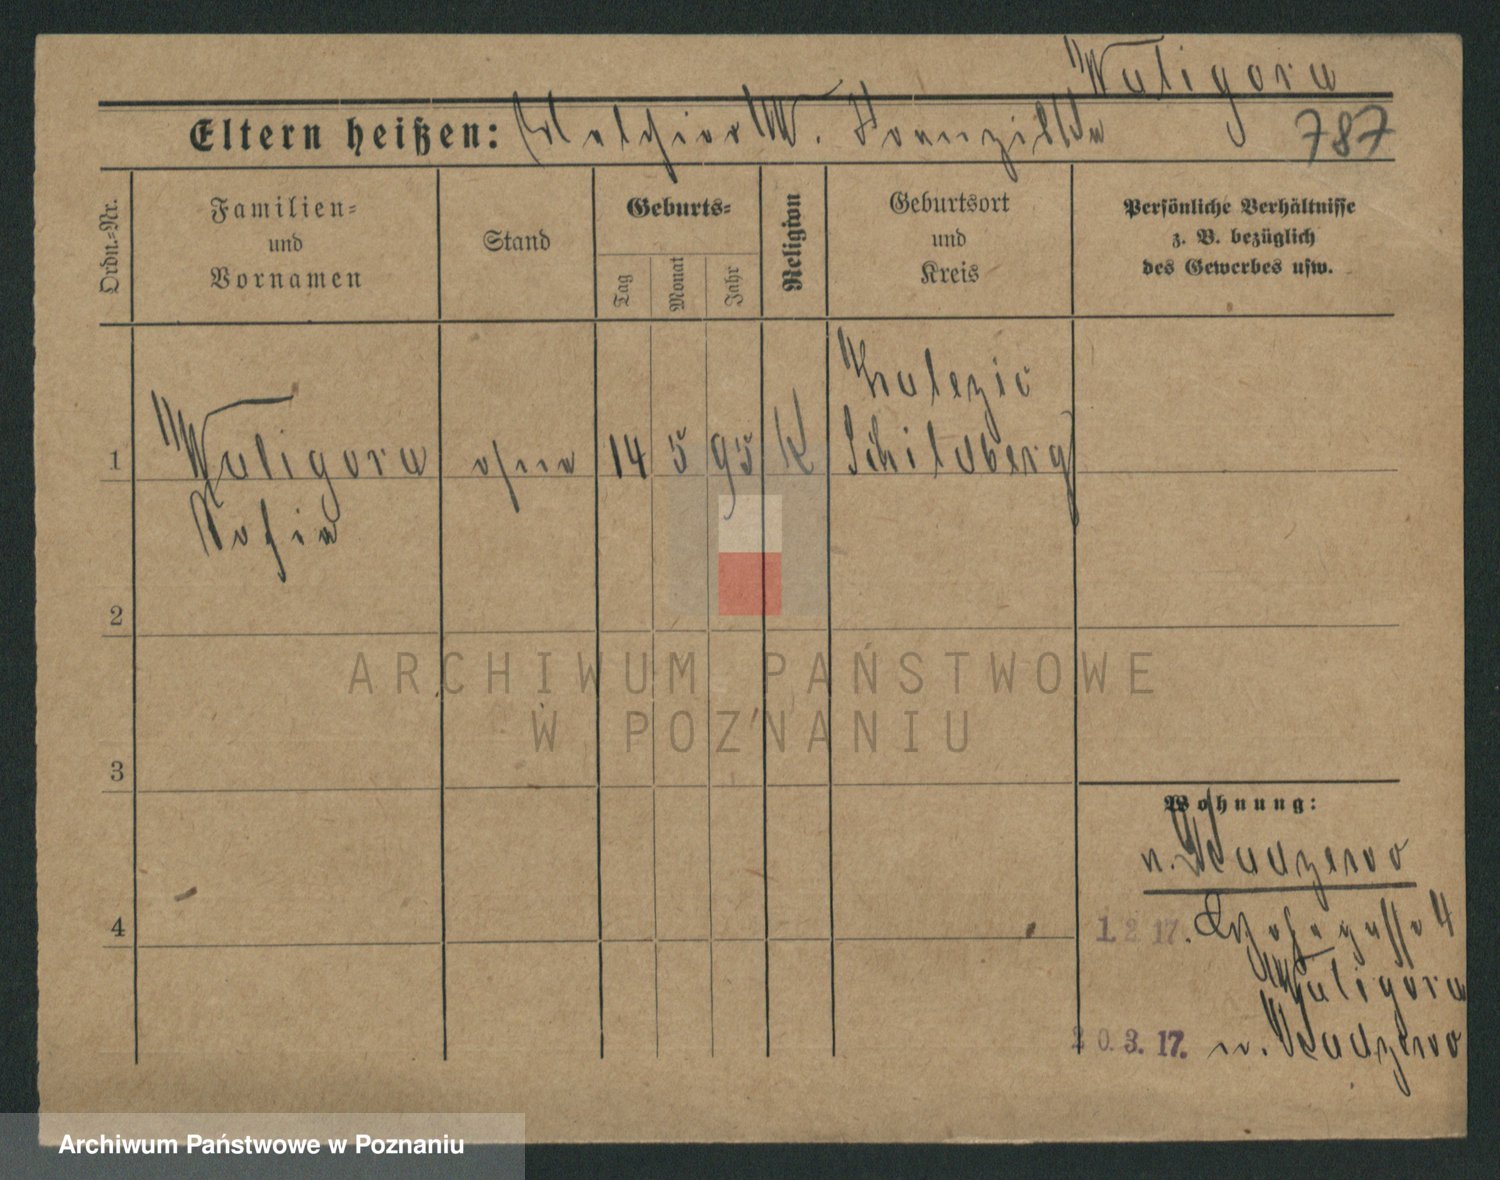 Waligora
Eltern heißen: Melchior W. Franziska
787
Ordn.-Nr.
Familien-
und
Vornamen
Stand
Geburts-
Tag
Monat
Jahr
Religion
Geburtsort
und
Kreis
Persönliche Verhältnisse
z. B. bezüglich
des Gewerbes usw.
1
Waligora
Sofia
ohne
14 5 95
K
Schildberg
2
3
4
Wohnung:
n.
1. 2 17.
4
Waligora
20. 3. 17. n.
ARCHIWUM PAŃSTWOWE
W POZNANIU
Archiwum Państwowe w Poznaniu